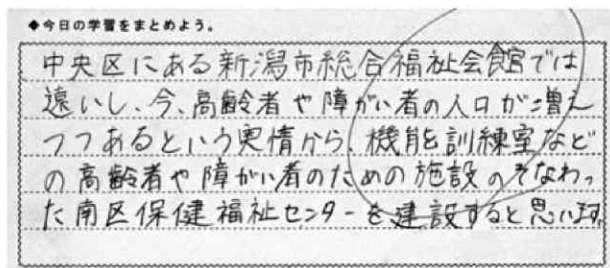 ◆今日の学習をまとめよう。
中央区にある新潟市総合福祉会館では
遠いし、今、高齢者や障がい者の人口が増え
つつあるという実情から、機能訓練室など
の高齢者や障がい者のための施設のそなわっ
た南区保健福祉センターを建設すると思います。